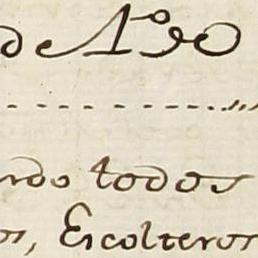 de A.º 90
ndo todos
os, Escolteros